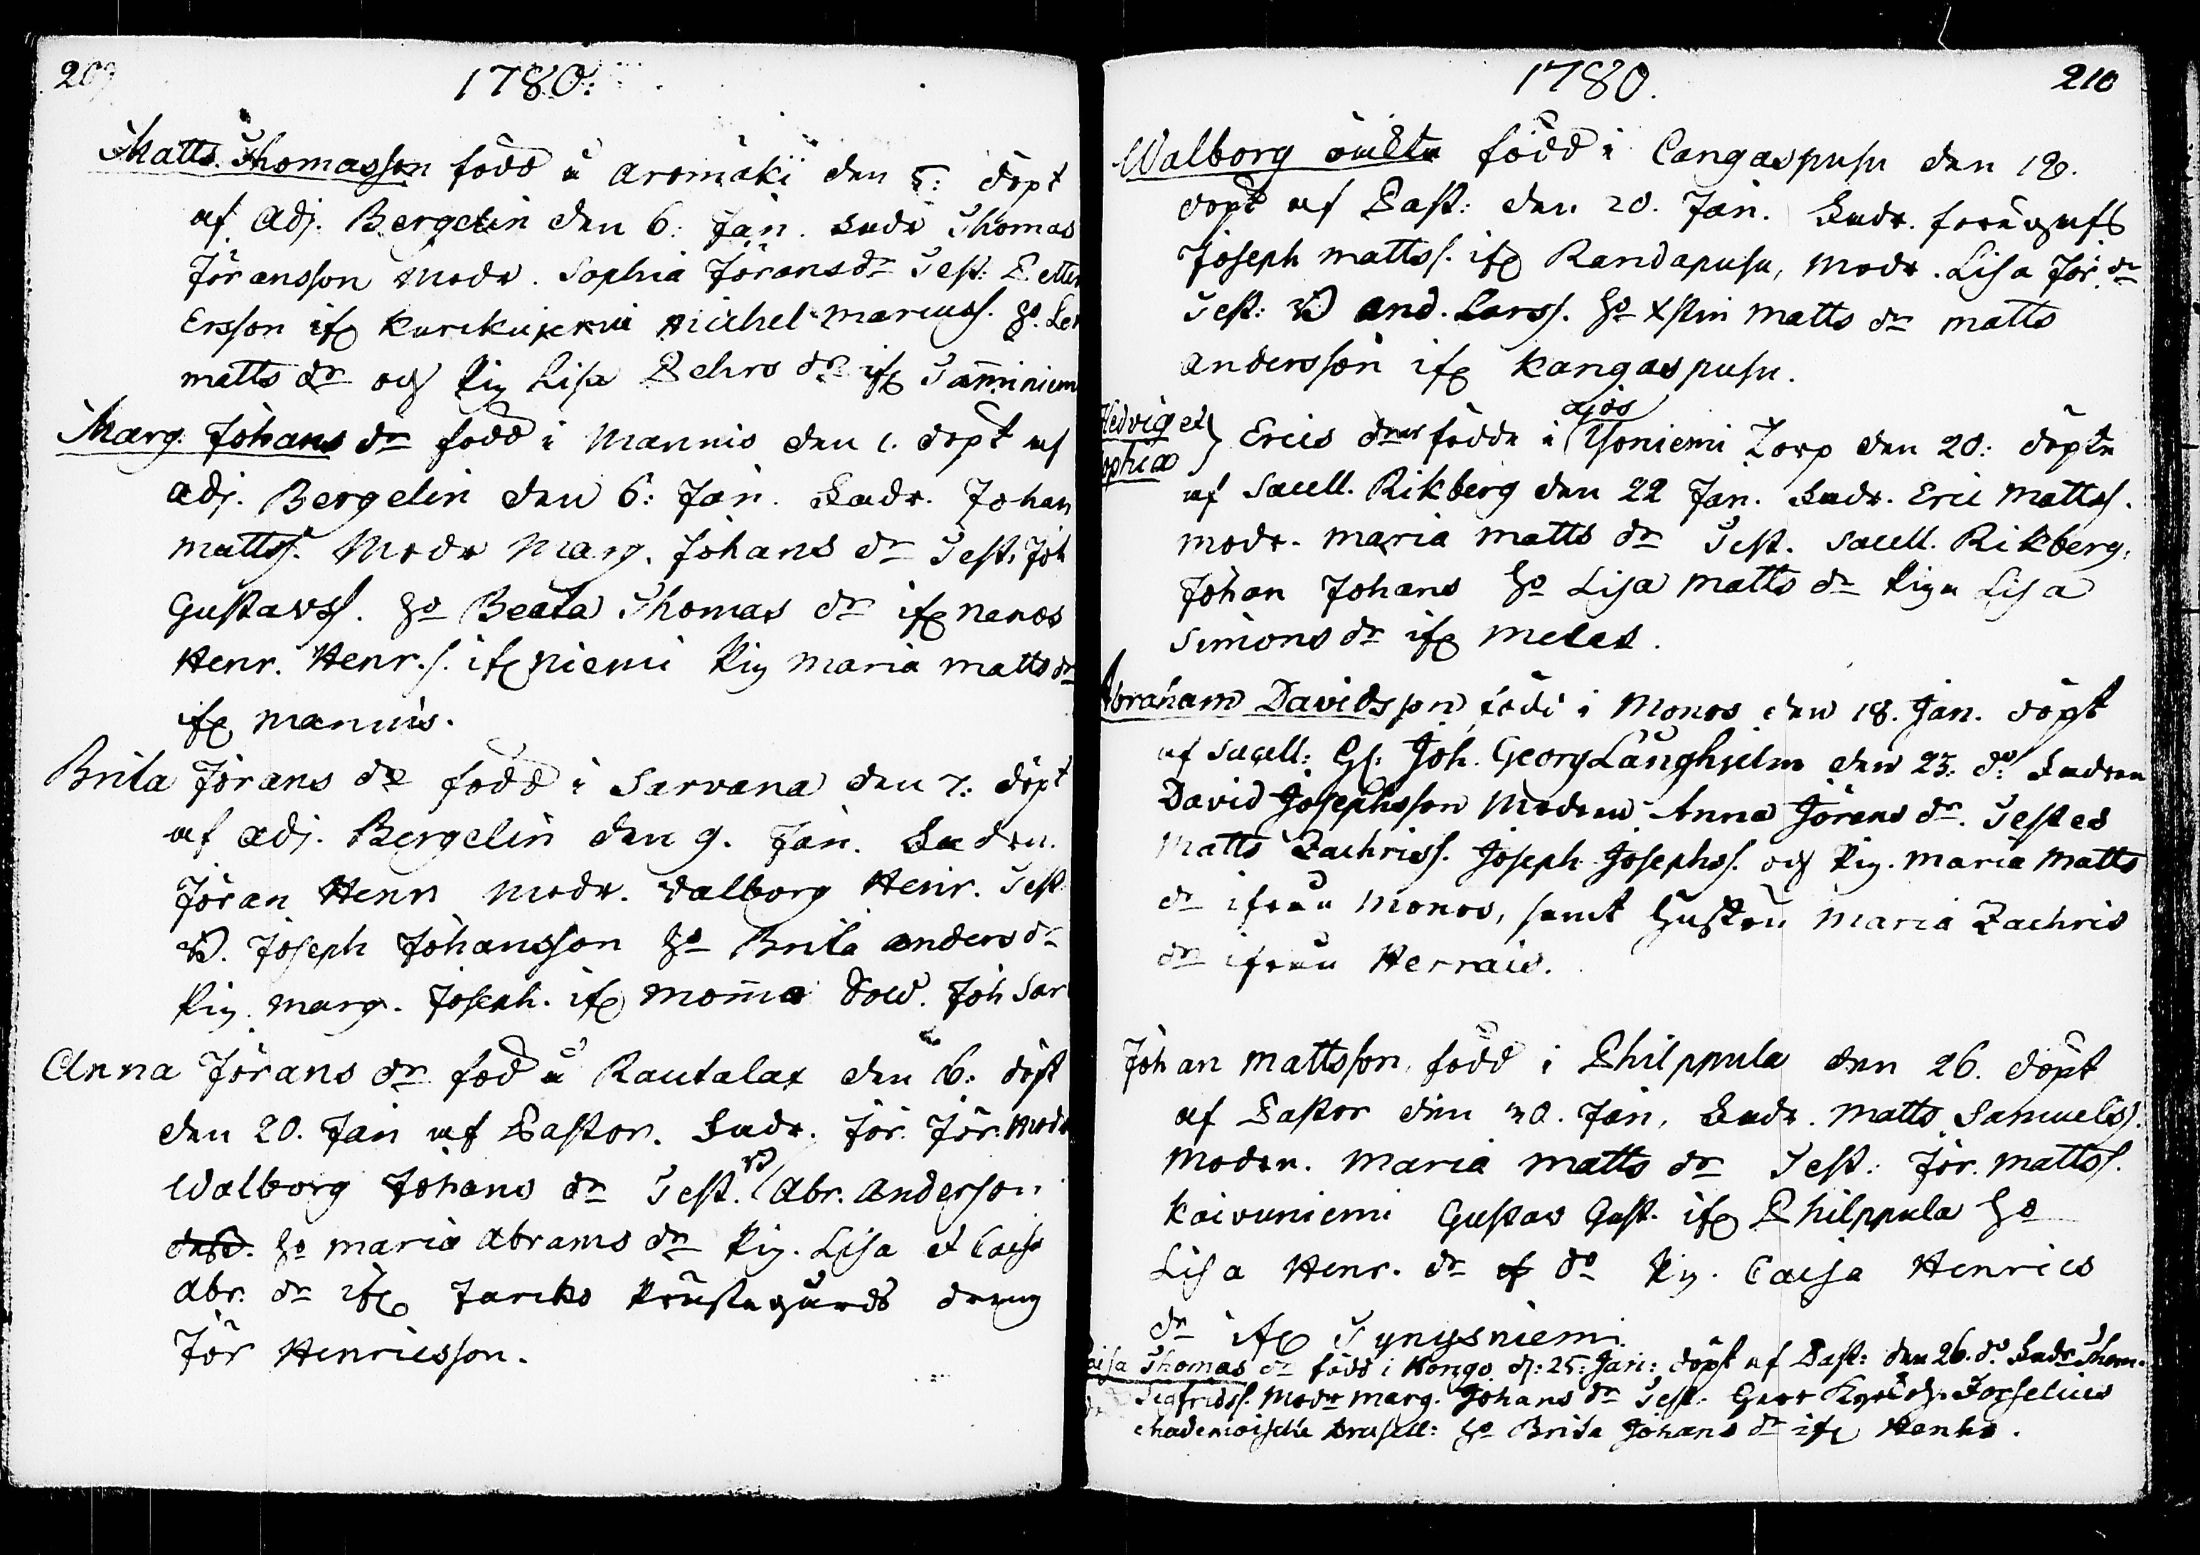 209
1780.
Matts Thomasson född å Aromäki den 5: döpt
af Adj. Bergelin den 6: Jan. Fadr Thomas
Jöransson Modr. Sophia Jörans dr Test: Petter
Ersson ifr Kurckujerwi Michel Marcuss. ho. Le
Matts dr och Pig Lisa Pehrs dr ifr Tam̄iniem
Marg. Johans dr född i Mannis den 1. döpt af
Adj. Bergelin den 6: Jan. Fadr. Johan
Mattss. Modr Marg. Johans dr Test: Joh
Gustavss. ho Beata Thomas dr ifr Nanos
Henr. Henr.s. ifr Niemi Pig Maria Matts dr
ifr Mannis.
Brita Jörans dr född i Sarvana den 7: döpt
af Adj. Bergelin den 9. Jan. Fadren
Jöran Henr Modr. Valborg Henr. Test
B. Joseph Johansson ho Brita Anders dr
Pig. Marg. Joseph. ifr Mom̄a Sold. Joh Sar
Anna Jörans dr föd å Rautalax den 16: döpt
den 20. Jan af Pastor. Fadr. Jör. Jör. Modr
Walborg Johans dr Test. B Abr. Anderson
ho Maria Abrams dr Pig. Lisa et Caisa
Abr. dr ifr Jarcko Prästegårds dreng
Jör Henricsson.
1780.
210
Walborg oäckta född i Cangaspusu den 18.
döpt af Past: den 20. Jan. Fadr. föregifs
Joseph Mattss. ifr Randapusu, Modr. Lisa Jör. dr
Test: B And. Larss. ho Xstin Matts dr Matts
Andersson ifr Kangaspusu.
Hedvig et Sophia } Erics drar födde i Ajos Isoniemi Torp den 20: döpte
af Sacell. Rikberg den 22 Jan. Fadr. Eric Mattss.
Modr. Maria Matts dr Test. Sacell. Rikberg.
Johan Johans ho Lisa Matts dr Piga Lisa
Simons dr ifr Melas.
Abraham Davidsson född i Monos den 18. Jan. döpt
af Sacell: H. Joh. Georg Långhjelm den 23: do Fadren
David Josephsson Modren Anna Jörans dr. Testes
Matts Zachriss. Joseph Josephs. och Pig. Maria Matts
dr ifrån Monos, samt Hustru Maria Zachris
dr ifrån Herrais.
Johan Mattsson, född i Philppula den 26. döpt
af Pastor den 30. Jan, Fadr. Matts Samuelss.
Modren. Maria Matts dr Test: Jör. Mattss.
Kaivuniemi Gustav Gust. ifr Philppula ho
Lisa Henr. dr af do Pig. Caisa Henrics
dr ifr Tynysniemi.
Caisa Thomas dr född i Kongo d: 25: Jan: döpt af Past: den 26. do Fadr Thom.
Sigfridss. Modr Marg. Johans dr Test: Forselius
ho Brita Johans dr ifr Henko.